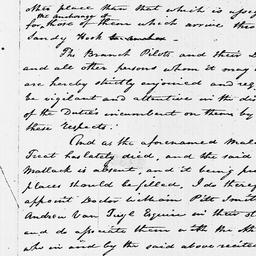 other place than that which is appo
the anchorage to
for, those of them which arrive thro
Sandy Hook
The Branch Pilots and their D
and all other persons whom it may c
are hereby strictly enjoined and req
be vigilant and attentive in the dis
of the Duties incumbent on them by
these Respects.
And as the aforenamed Mala
Treat has lately died, and the said
Mallack is absent, and it being pu
places should be filled, I do thereg
appoint Doctor William Pitt Smit
Andrew Van Tuyl Esquire in their st
and do associate them with the
who in and by the said above recited